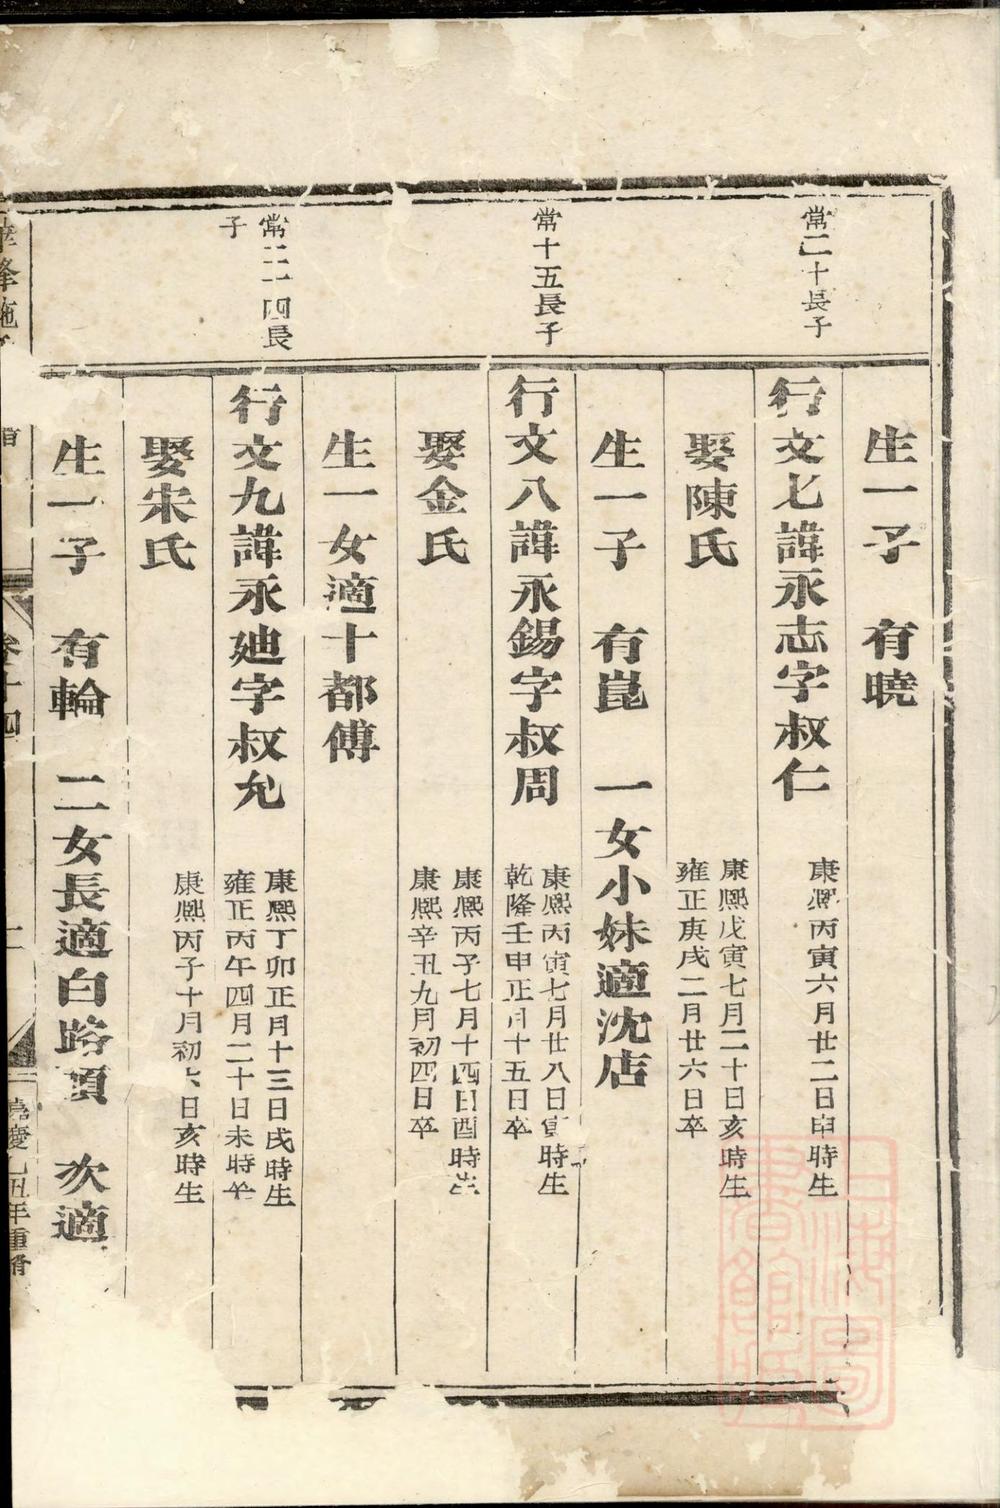 生一子　有曉
常二十長子
行文七諱永志字叔仁
康熙丙寅六月廿二日申時生
娶陳氏
康熙戊寅七月二十日亥時生
雍正庚戌二月廿六日卒
生一子　有崑　一女小妹適沈店
常十五長子
行文八諱永錫字叔周
康熙丙寅七月廿八日寅時生
乾隆壬申正月十五日卒
娶金氏
康熙丙子七月十四日酉時生
康熙辛丑九月初四日卒
生一女適十都傅
常二十四長
子
行文九諱永廸字叔允
康熙丁卯正月十三日戌時生
雍正丙午四月二十日未時卒
娶宋氏
康熙丙子十月初六日亥時生
生一子　有輪　二女長適白路頂　次適
峰施
卷十四
嘉慶乙丑年重脩
上海圖書館藏